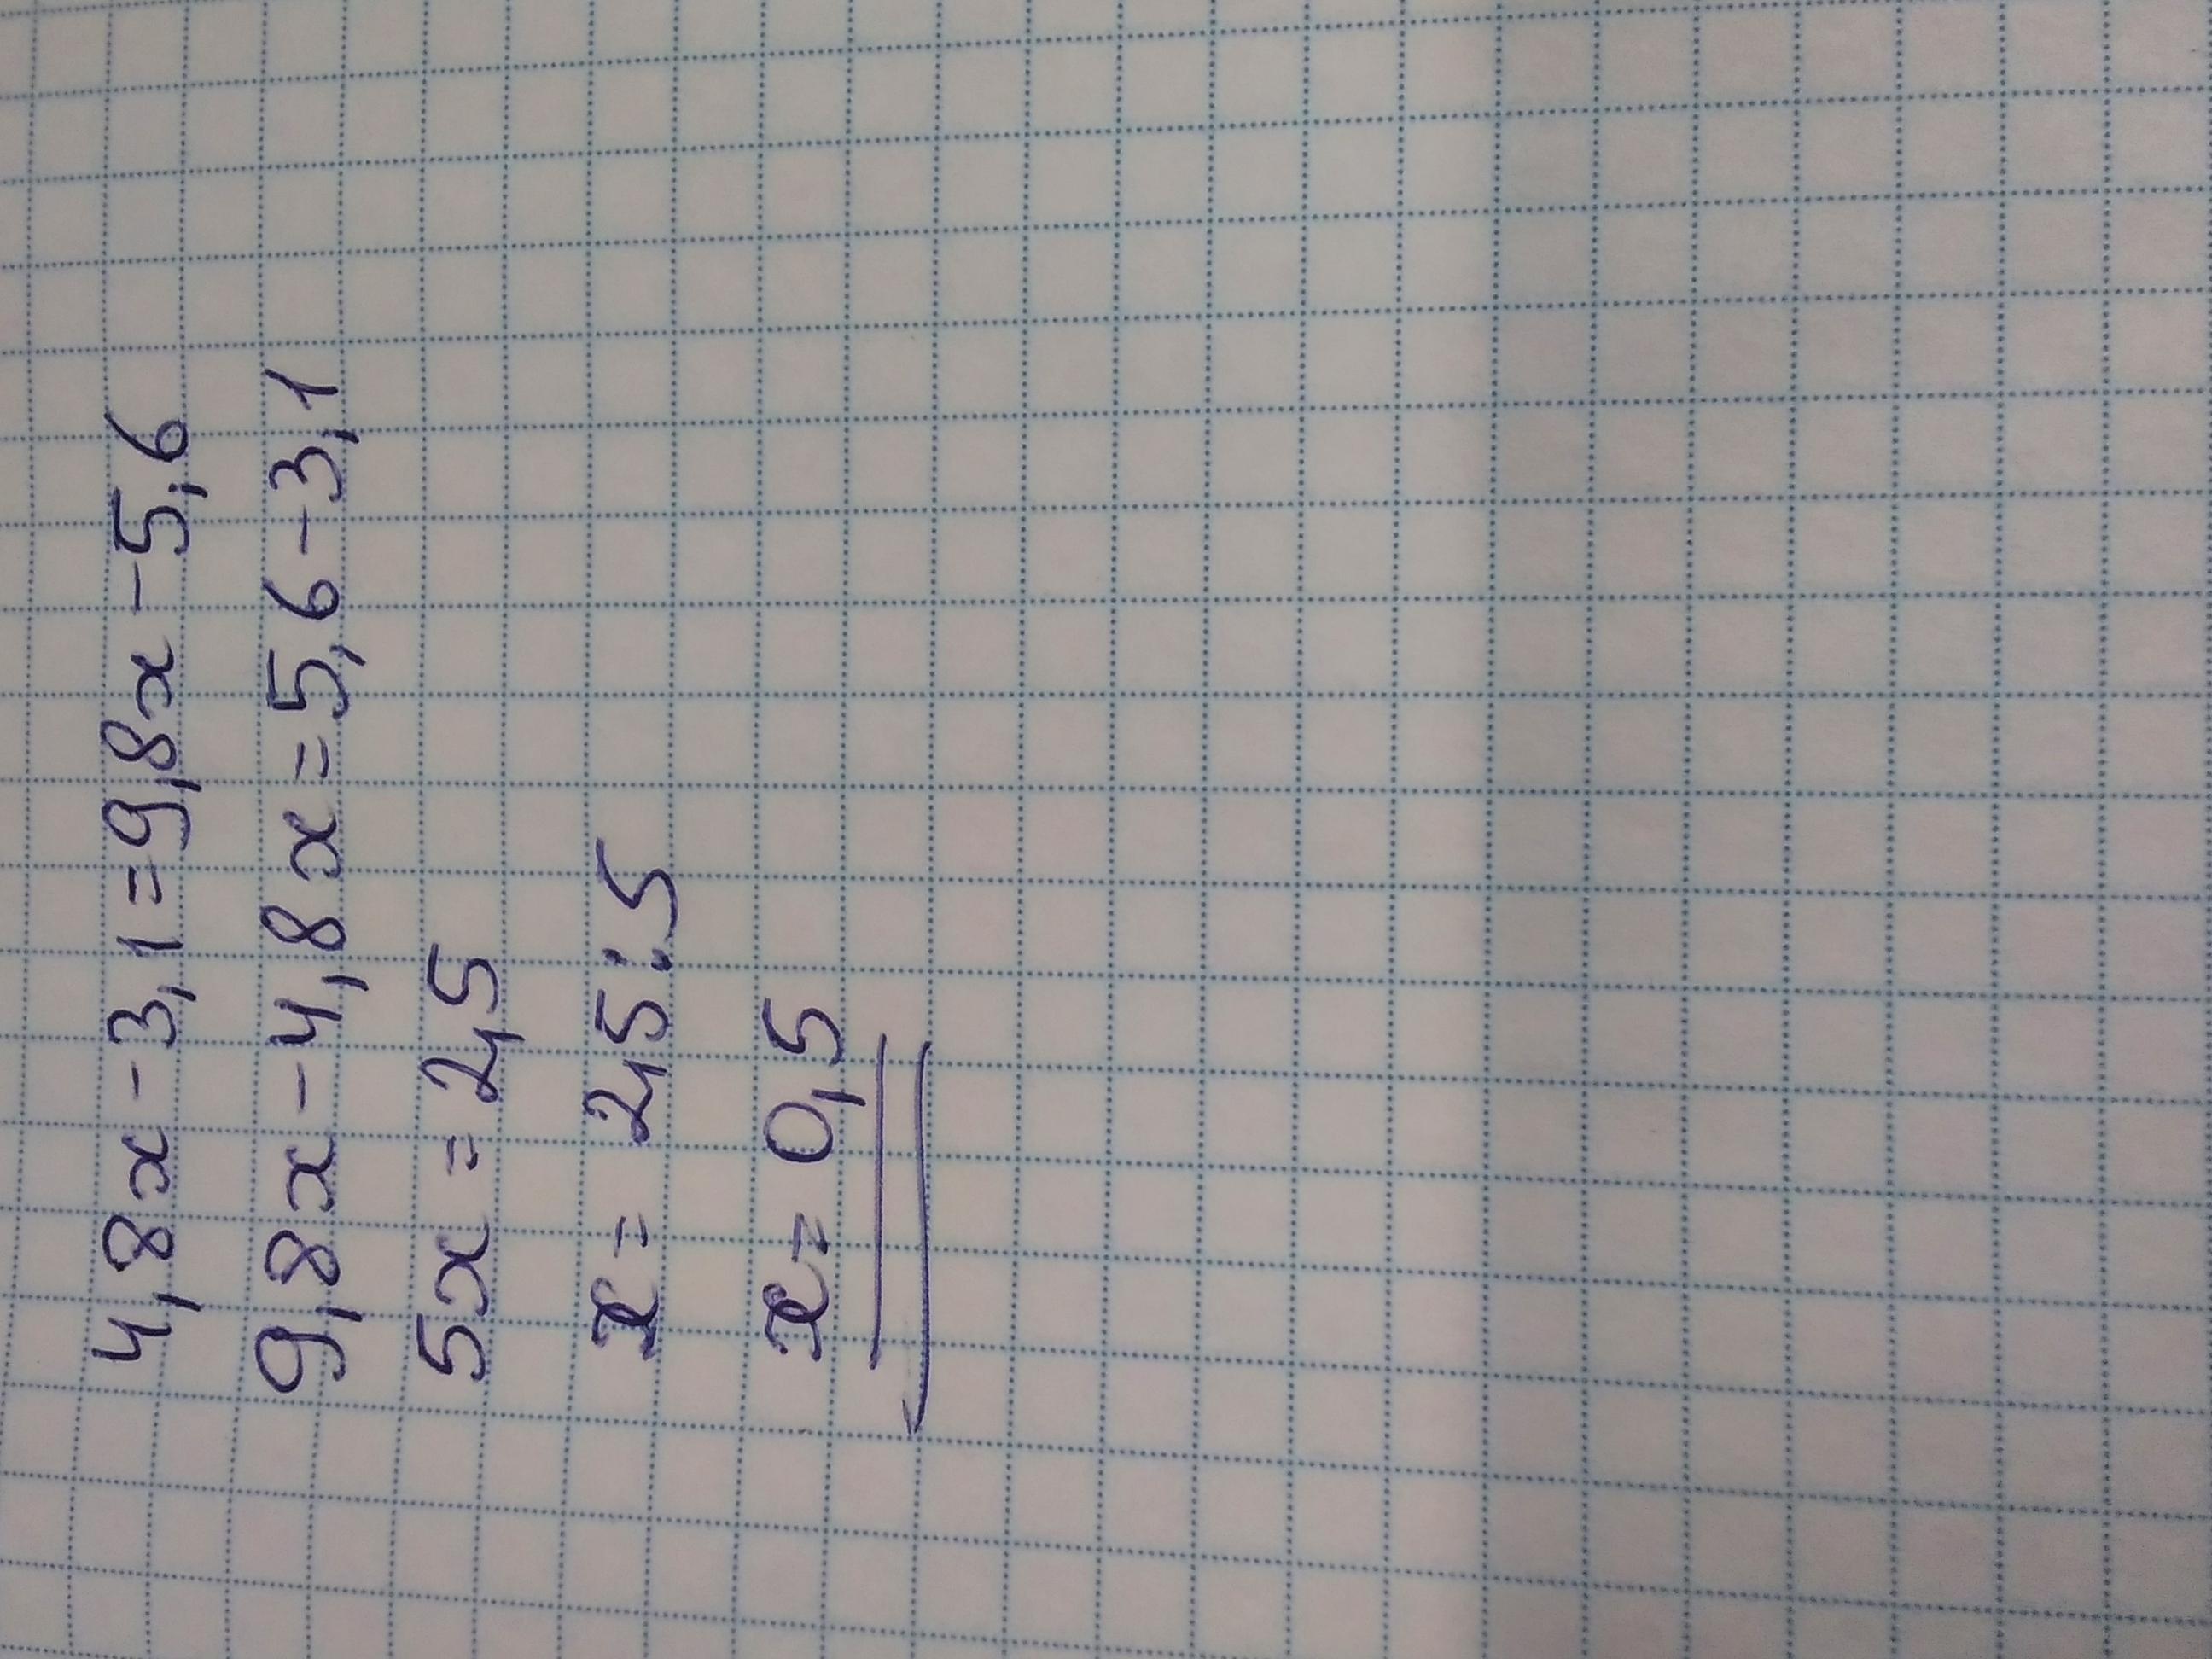 4,8x-3,1=9,8x-5,6
9,8x-4,8x=5,6-3,1
5x=2,5
x=2,5:5
x=0,5